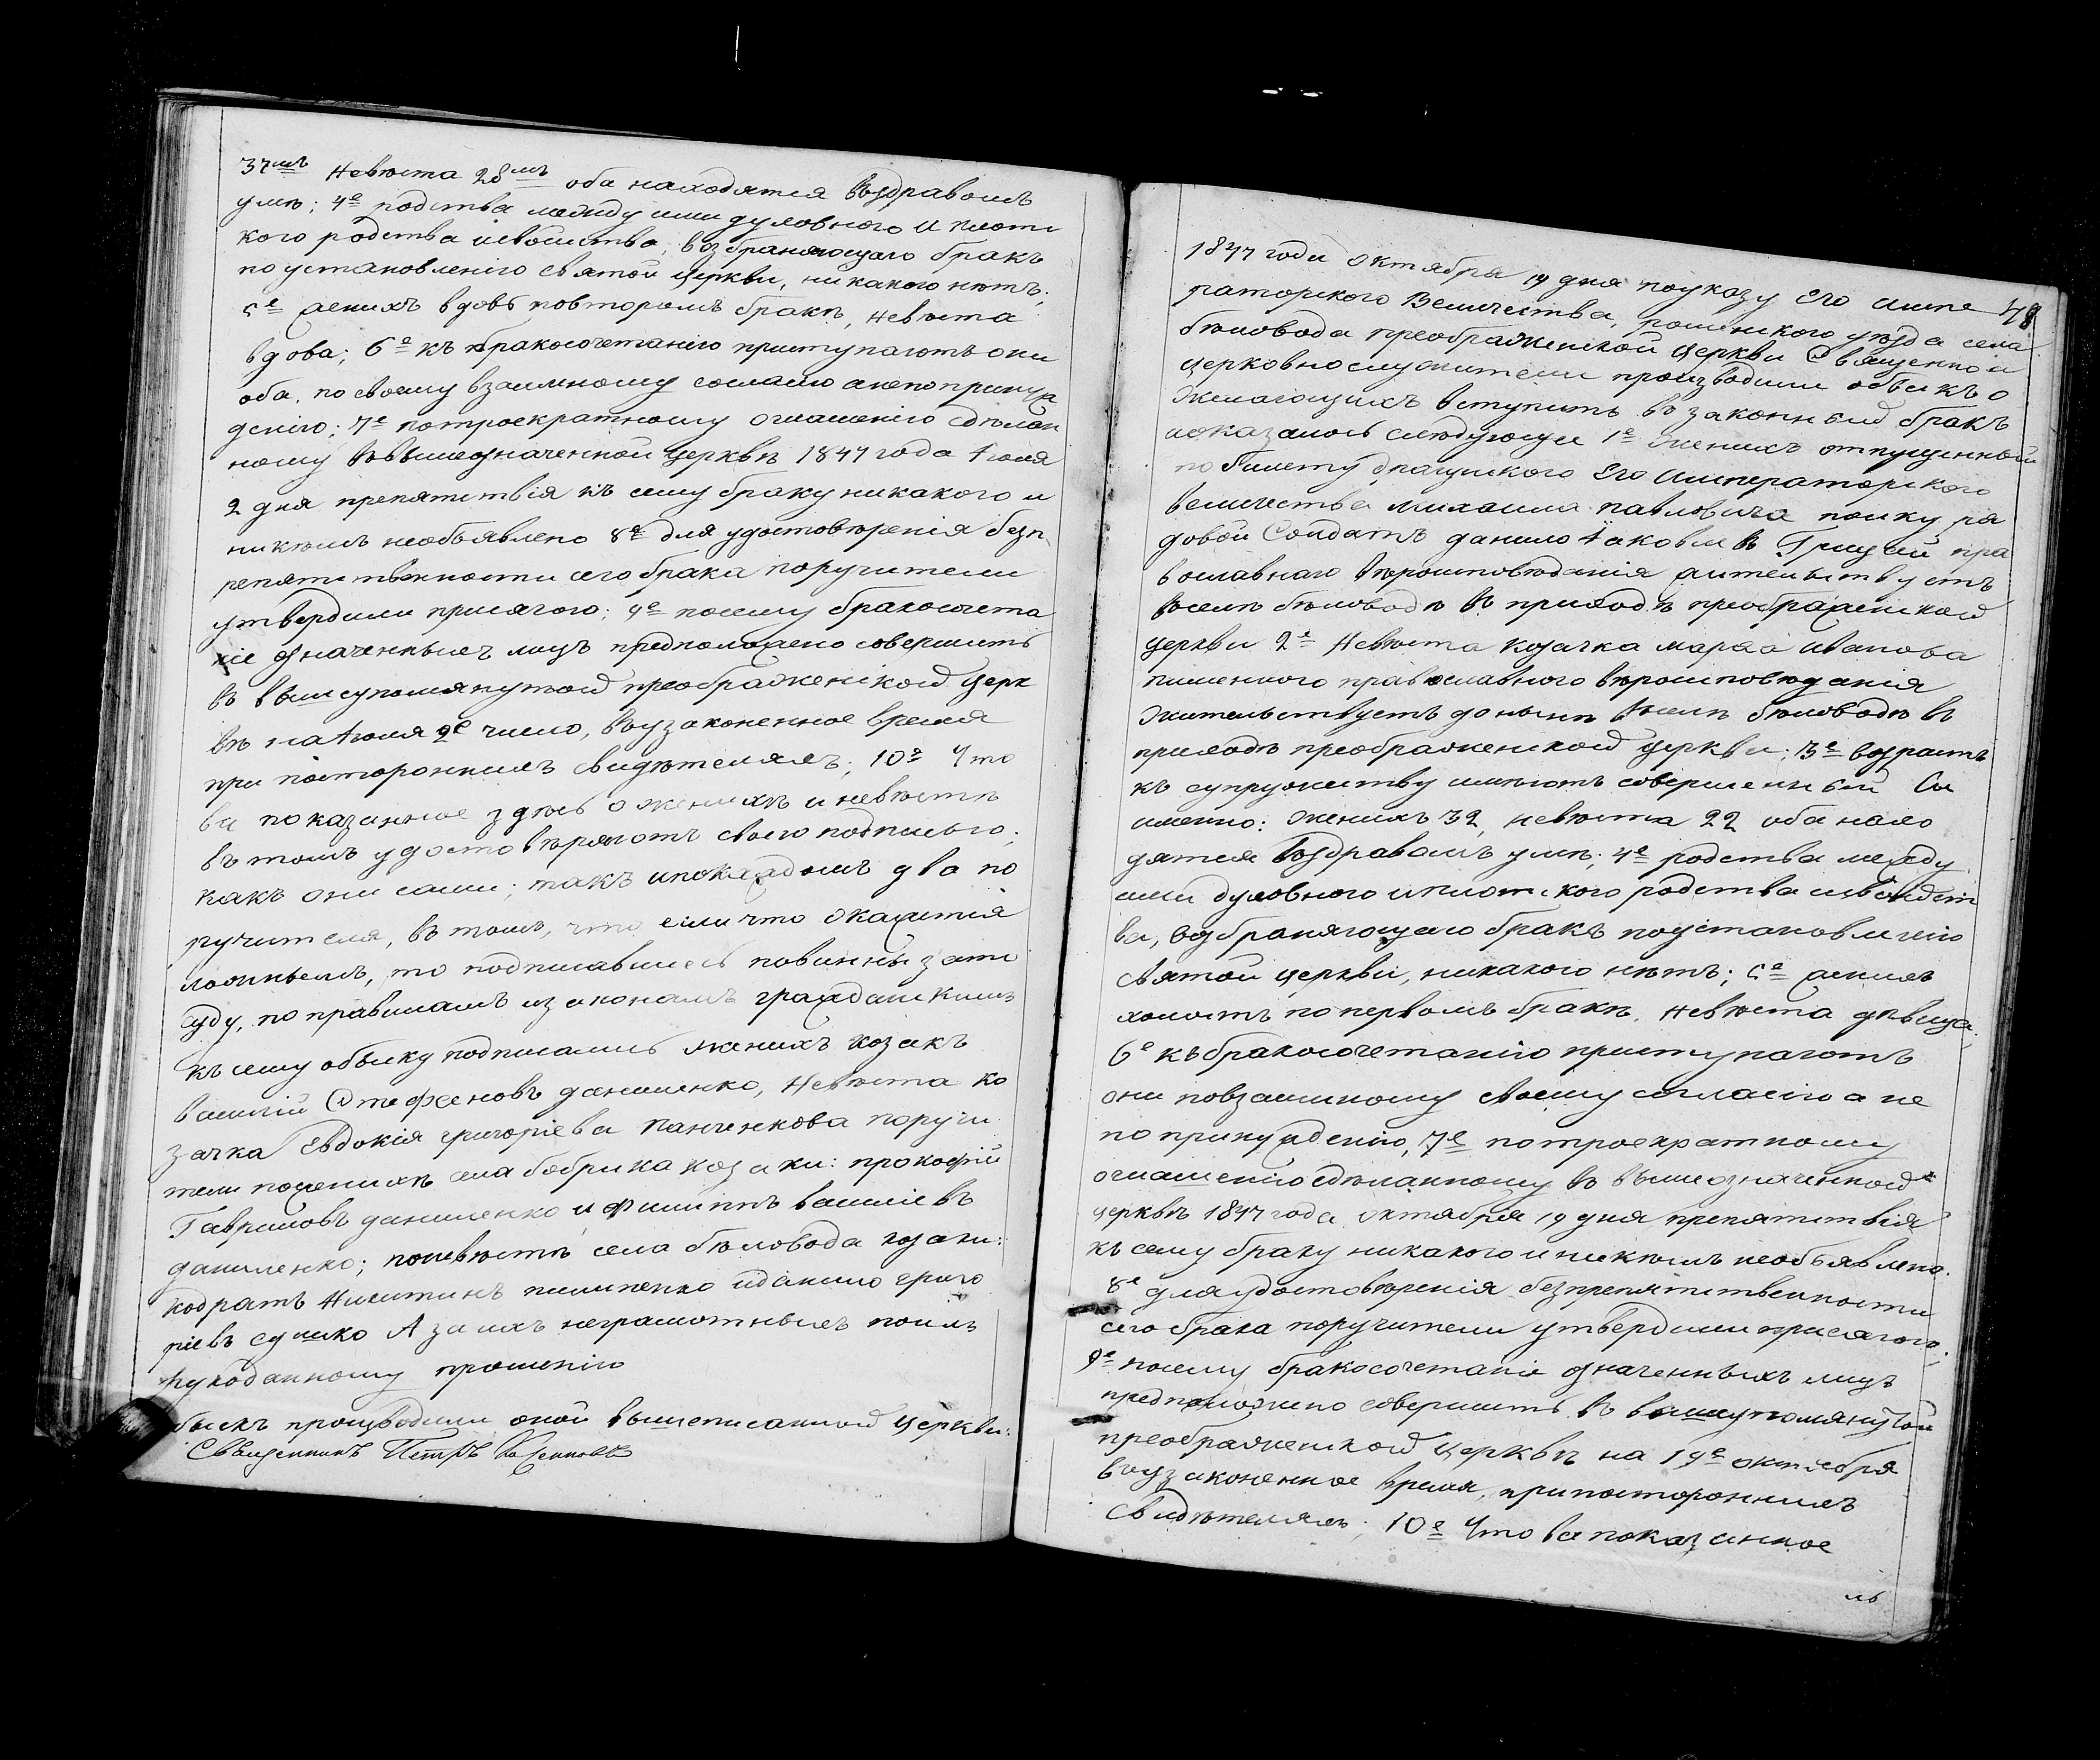 37мъ Невѣста 28мъ оба находятся въздравомъ
умѣ; 4е родства между ими духовного и плотс
кого родства исвойства, возбраняющаго бракъ
поустановленію святой церкви, никакого нѣтъ;
5е женихъ вдовъ повторомъ бракѣ, Невѣста
вдова; 6е къ бракосочетанію приступаютъ они
оба, по своему взаимному согласію анепопринуж
денію; 7е потроекратному оглашенію сдѣлан
ному въвышеозначенной Церквѣ 1847 года Іюля
2 дня препятствія къ сему браку никакого и
никѣмъ необъявлено 8е для удостовѣренія безп
репятственности сего брака поручители
утвердили присягою; 9е посему бракосочета
ніе означенныхъ лицъ предположено совершить
въ вышеупомянутой преображенской церк
вѣ наІюля 2е число, въузаконенное время
при постороннихъ свидѣтеляхъ; 10е Что
все показанное здѣсь о женихѣ и невѣстѣ
въ томъ удостовѣряютъ своею подписью;
какъ они сами; такъ ипокаждомъ два по
ручителя, въ томъ, что если что окажется
ложнымъ, то подписавшиеся повинны зато
суду, по правиламъ изаконамъ гражданскимъ
къ сему обыску подписались женихъ козакъ
василій Стефановъ даниленко, Невѣста ко
зачка Евдокія григорієва Панченкова поручи
тели поженихѣ села бобрика козаки: прокофій
Гавриловъ даниленко и филиппъ василіевъ
даниленко; поневѣстѣ села бѣловода козаки:
кодратъ Никитинъ пилипенко идаміло григо
ріевъ сушко А заихъ неграмотныхъ поихъ
рукоданному прошенію
обыскъ производили оной вышеписанной церкви:
Священникъ Петръ
1847 года Октября 19 дня поуказу Его импе 48
раторского Величества, роменского уѣзда села
бѣловода преображенской церкви Священно и
церковнослужители производили обыскъ о
Желающихъ вступить въ законный бракъ
иоказалось слѣдующее 1е Женихъ отпущенный
по билету драгунского Его Императорского
величества михаила павловича полку ря
довой Солдатъ данило Іаковлевъ Грицай пра
вославнаго вѣроисповѣданія жительствуетъ
въселѣ бѣловодѣ въ приходѣ преображенской
церкви 2е Невѣста козачка марѳа иванова
православного вѣроисповѣданія
жительствуетъ донынѣ въселѣ бѣловодѣ въ
приходѣ преображенской церкви; 3е возрастъ
къ супружеству имѣютъ совершенный Са
именно: женихъ 32, невѣста 22 оба нахо
дятся въздравомъ умѣ; 4е родства между
ими духовного иплотского родства исвойст
ва, возбраняющаго бракъ поустановленію
святой церкви, никакого нѣтъ; 5е женихъ
холостъ попервомъ бракѣ, Невѣста дѣвица;
6е къбракосочетанію приступаютъ
они повзаимному своему согласію а не
по принужденію, 7е по троекратному
оглашенію сдѣланному въ вышеозначенной
церквѣ 1847 года октября 19 дня препятствія
къ сему браку никакого иникѣмъ необъявлено.
8е дляудостовѣренія безпрепятственности
сего брака поручители утвердили присягою;
9е посему бракосочетаніе означенныхъ лицъ
предположено совершить въ вышеупомянутой
преображенской церквѣ на 19е октября
въузаконенное время, припостороннихъ
свидѣтеляхъ; 10е Что все показанное